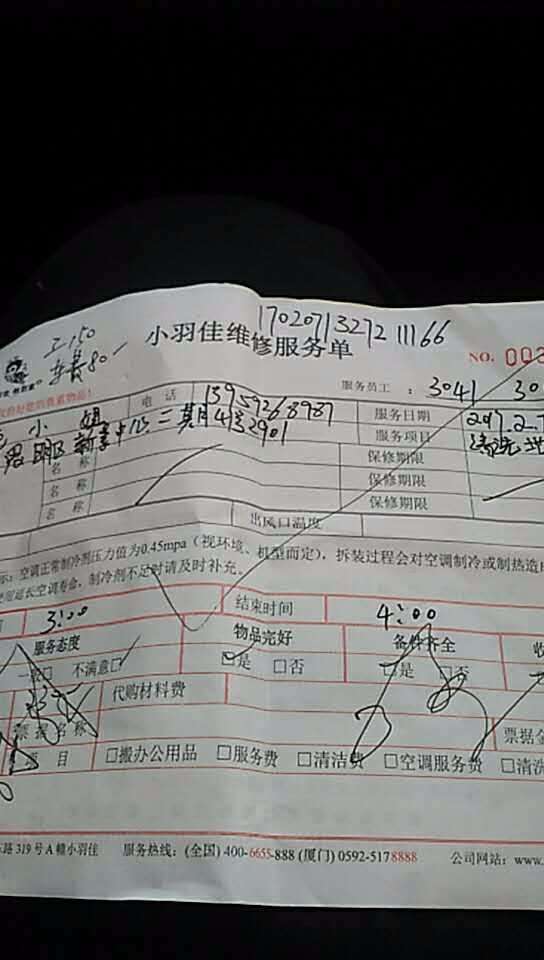 17020713272 11166
工150
车费80
小羽佳维修服务单
NO. 003
服务员工：3041 30
电话 13959268987 服务日期 2017.2.7
小姐
思明区 二期4号2901 服务项目 清洗
名称 保修期限
名称 保修期限
名称 保修期限
出风口温度
示：空调正常制冷剂压力值为0.45mpa（视环境、机型而定），拆装过程会对空调制冷或制热造
延长空调寿命，制冷剂不足时请及时补充。
3:00 结束时间 4:00
服务态度 物品完好 备件齐全 收
一般□ 不满意□ □是 □否 □是 □否
代购材料费
票据名称 票据金
项目 □搬办公用品 □服务费 □清洁费 □空调服务费 □清洗
路319号A幢小羽佳 服务热线：(全国) 400-6655-888 (厦门) 0592-5178888 公司网站：www.